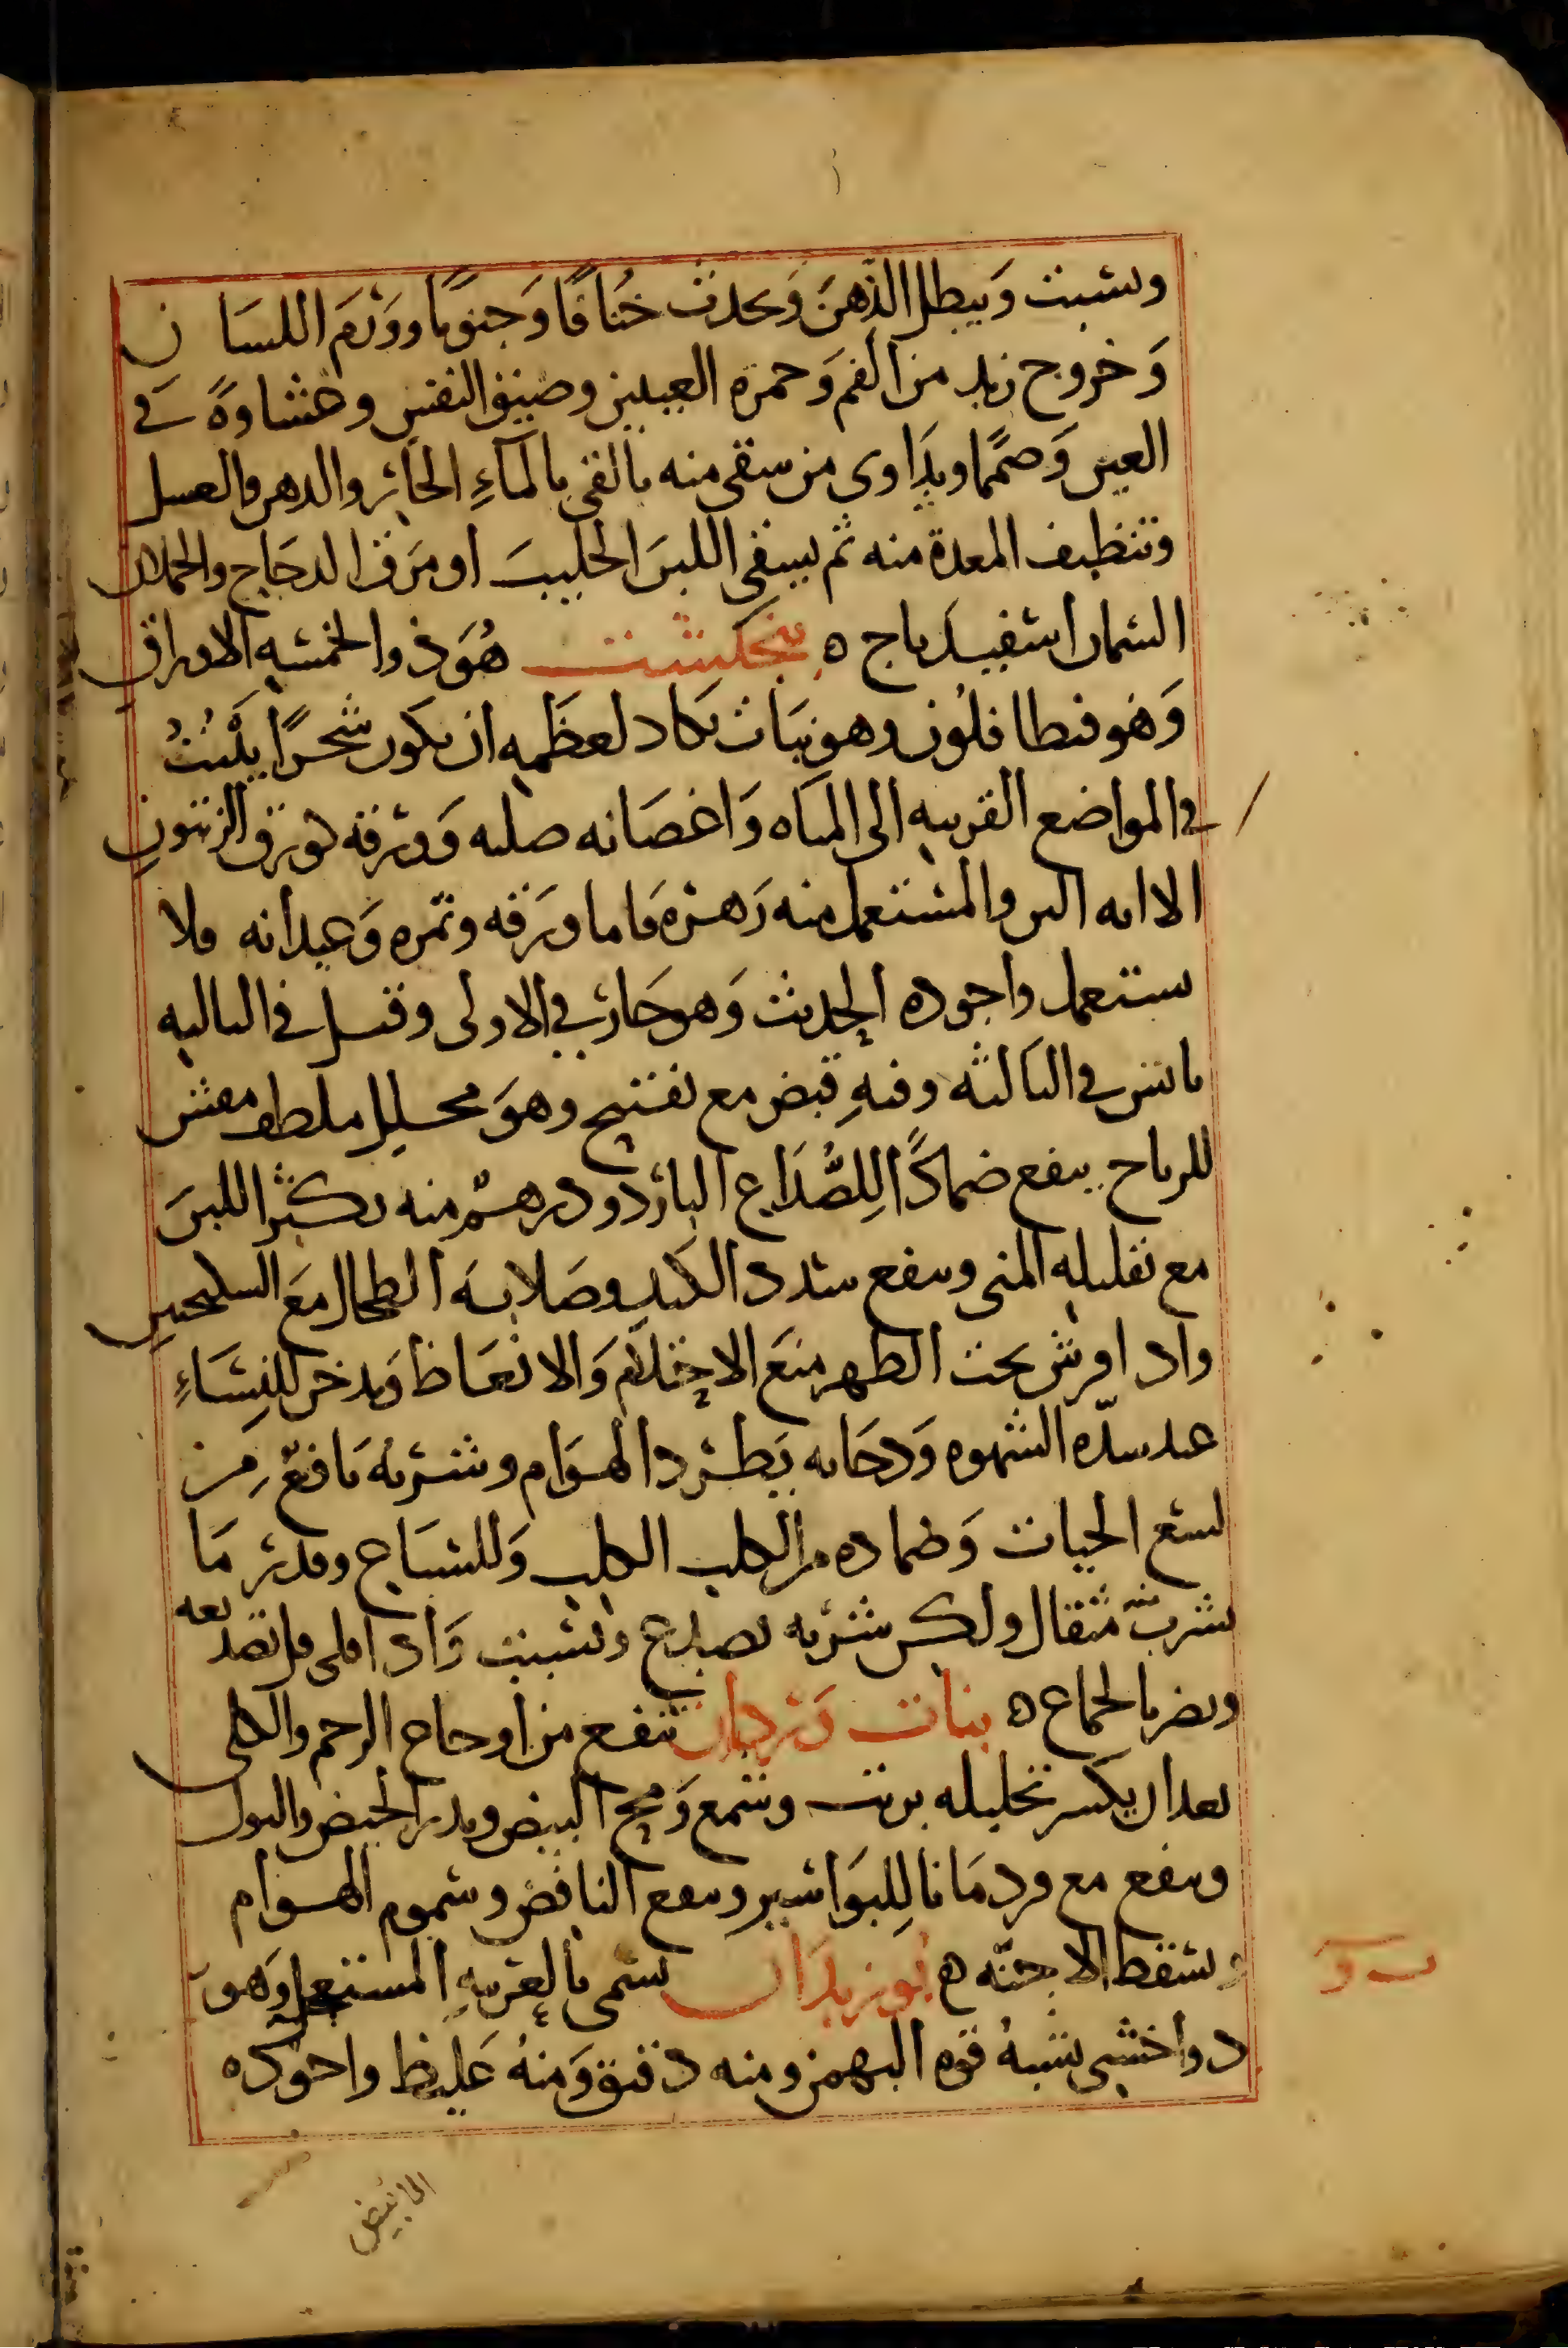 ويسبت وَيبطل الذّهنَ وَيحدث خُنَاقًا وَجنونًا ووَرَمَ اللسَان
وَخروج زبد من الفم وَحمرة العينين وضيق النفس وغشاوةً في
العين وَصمَمًا ويدَاوى من سقى منه بالقى بالمآءِ الحَار والدهن والعسل
وتنظيف المعدة منه ثم يسقى اللبنَ الحليبَ او مَرَق الدجَاج والحملان
السمان اسفيدباج ه بنجنكشت هُوَ ذو الخمسه الاوراق
وَهو فنطافلُون وهو نبَات يكاد لعظَمِه ان يكون شجرًا ينْبُتُ
في المواضع القريبه الى المياه وَاغصَانه صلبه وَورقه كورق الزيتون
الا انه الين والمستعمل منه زَهره فاما ورَقه وثمره وَعيدانه فلا
يستعمل واجوده الحديث وَهو حَار في الاولى وقيل في الثانيه
يابس في الثالثه وفيهِ قبض مع تفتيح وهوَ محلل ملطف مفش
للرياح ينفع ضمادًا لِلصُّدَاع البارد ودرهمٌ منه يكثر اللبنَ
مع تقليله المنى وينفع سدد الكبد وصَلابه الطحال مع السكنجبين
واذا فرش تحت الظهر منعَ الاحتلام وَالانعَاظ وَيدخن للنِسَاءِ
عند شدّه الشهوه وَدخانه يَطرد الهوَام وشربه نَافعٌ مِن
لسع الحيات وَضماده من الكلب الكلب وَللسباع وقدر مَا
يشرب منه مثقال ولكن شربه يصدع ويسبت وَاذا قلى قل تصديعه
ويضر بالجماع ه بنات وَردان تنفع من اوجاع الرحم والكلى
بعد ان يكسر تحليله بزيت وشمع وَمح البيض ويدر الحيض والبول
وينفع مع قردمَانا لِلبوَاسير وينفع النافض وسموم الهوام
ويسقط الاجنّه ه بوزيدان يسمى بالعربيهِ المستعجل وَهو
دوا خشبى يشبهُ قوه البهمن ومنه دقيق وَمنهُ غليظ واجوده
الابيض